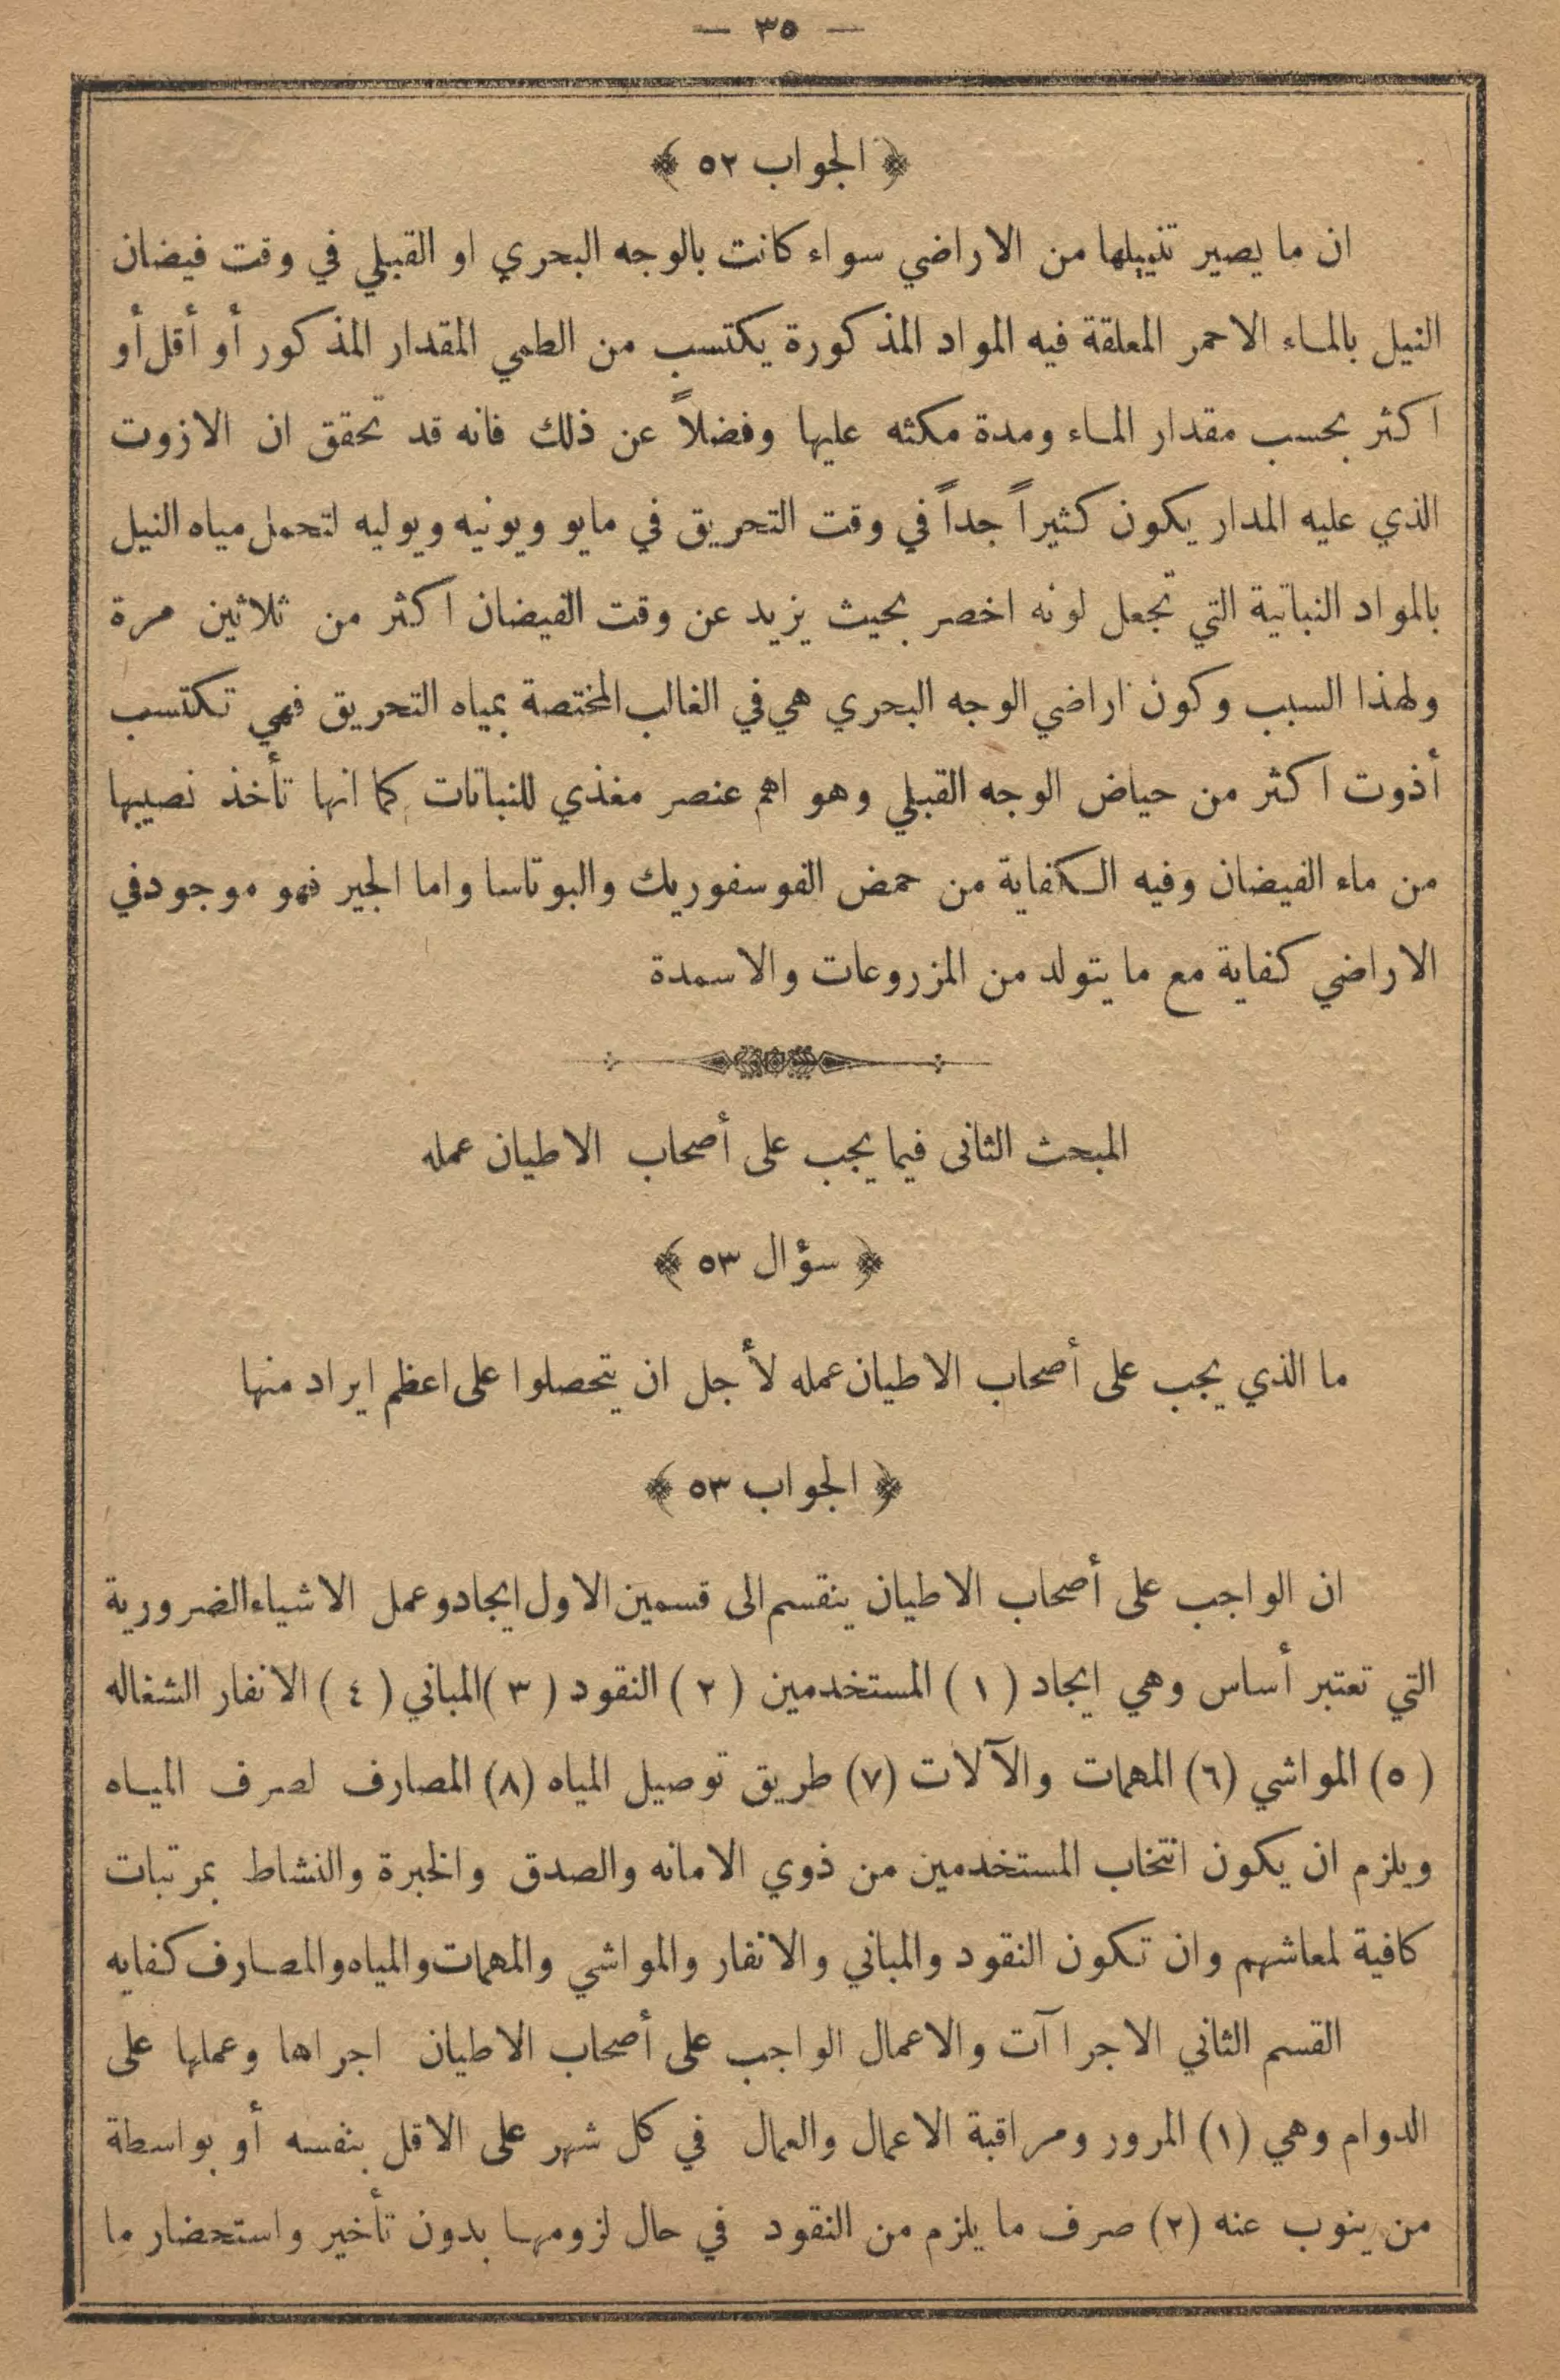 — ٣٥ —
﴿ الجواب ٥٢ ﴾
ان ما يصير تنييلها من الاراضي سواء كانت بالوجه البحري او القبلي في وقت فيضان
النيل بالماء الاحمر المعلقة فيه المواد المذكورة يكتسب من الطمي المقدار المذكور أو أقل أو
اكثر بحسب مقدار الماء ومدة مكثه عليها وفضلاً عن ذلك فانه قد تحقق ان الازوت
الذي عليه المدار يكون كثيراً جداً في وقت التحريق في مايو ويونيه ويوليه لتحمل مياه النيل
بالمواد النباتية التي تجعل لونه اخضر بحيث يزيد عن وقت الفيضان اكثر من ثلاثين مرة
ولهذا السبب وكون اراضي الوجه البحري هي في الغالب المختصة بمياه التحريق فهي تكتسب
أذوت اكثر من حياض الوجه القبلي وهو اهم عنصر مغذي للنباتات كما انها تأخذ نصيبها
من ماء الفيضان وفيه الكفاية من حمض الفوسفوريك والبوتاسا واما الجير فهو موجود في
الاراضي كفاية مع ما يتولد من المزروعات والاسمدة
المبحث الثانى فيما يجب على أصحاب الاطيان عمله
﴿ سؤال ٥٣ ﴾
ما الذي يجب على أصحاب الاطيان عمله لأجل ان يتحصلوا على اعظم ايراد منها
﴿ الجواب ٥٣ ﴾
ان الواجب على أصحاب الاطيان ينقسم الى قسمين الاول ايجاد وعمل الاشياء الضرورية
التي تعتبر أساس وهي ايجاد (١) المستخدمين (٢) النقود (٣) المباني (٤) الانفار الشغاله
(٥) المواشي (٦) المهمات والآلات (٧) طريق توصيل المياه (٨) المصارف لصرف المياه
ويلزم ان يكون انتخاب المستخدمين من ذوي الامانه والصدق والخبرة والنشاط بمرتبات
كافية لمعاشهم وان تكون النقود والمباني والانفار والمواشي والمهمات والمياه والمصارف كفايه
القسم الثاني الاجراآت والاعمال الواجب على أصحاب الاطيان اجراها وعملها على
الدوام وهي (١) المرور ومراقبة الاعمال والعمال في كل شهر على الاقل بنفسه أو بواسطة
من ينوب عنه (٢) صرف ما يلزم من النقود في حال لزومها بدون تأخير واستحضار ما